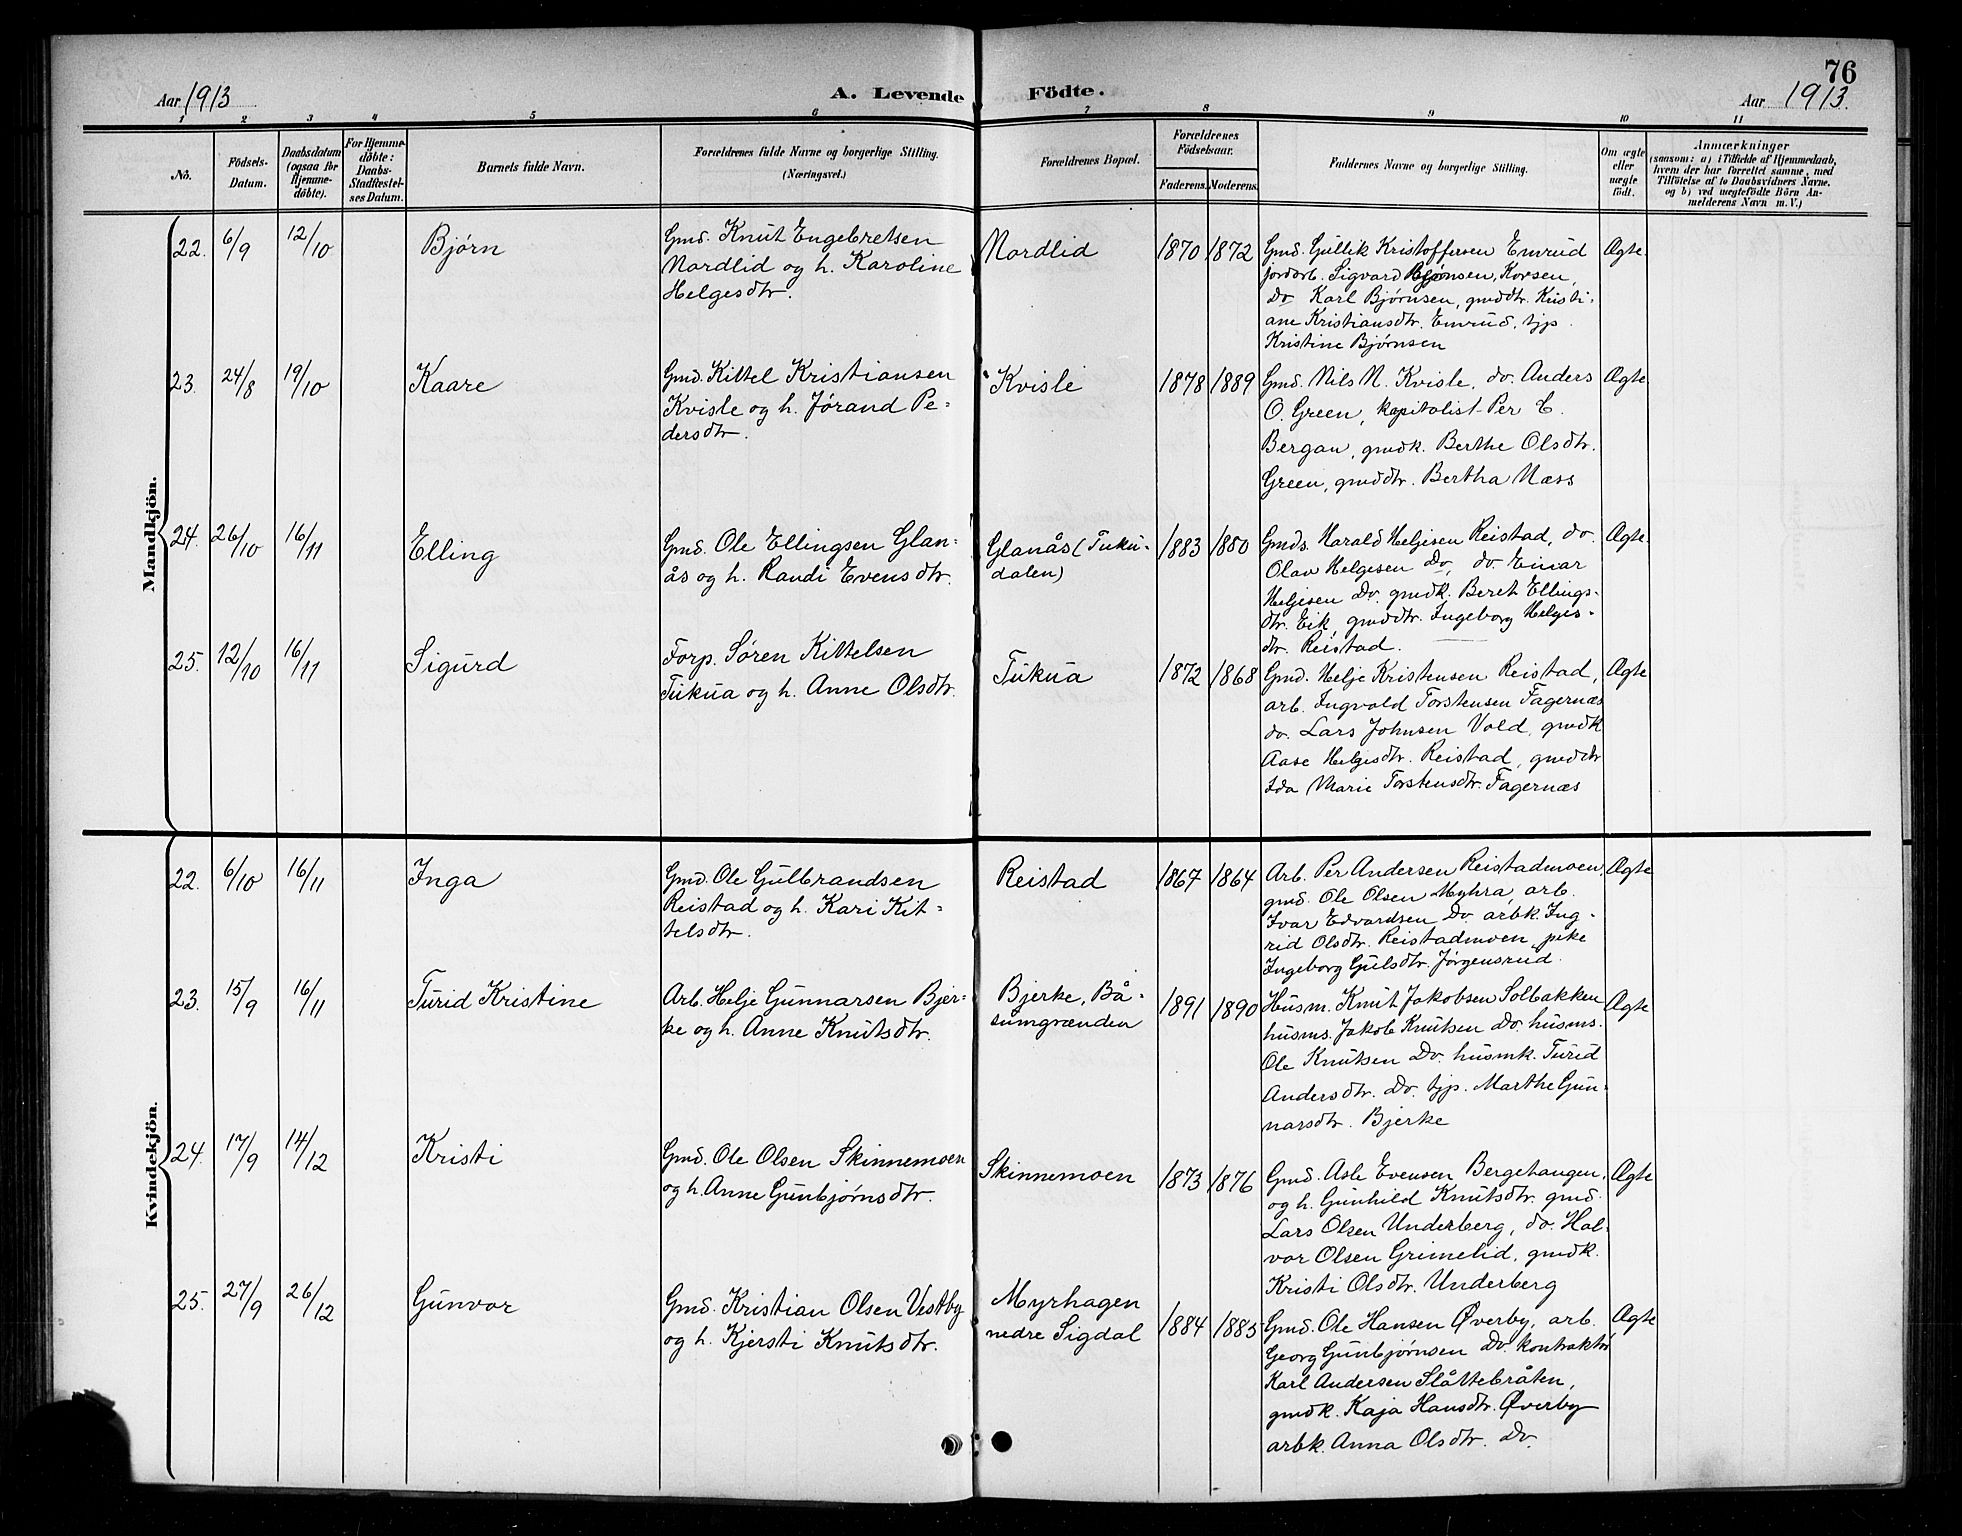 76
Aar 1913
A. Levende
Födte.
Aar 1913.
1 2 3 4 5 6 7 8 9 10 11
No.
Födsels-
Datum.
Daabsdatum
(ogsaa for
Hjemme-
döbte).
For Hjemme-
döbte:
Daabs-
Stadfæstel-
ses Datum.
Barnets fulde Navn.
Forældrenes fulde Navne og borgerlige Stilling.
(Næringsvei.)
Forældrenes Bopæl.
Forældrenes
Födselsaar.
Faderens. Moderens.
Faddernes Navne og borgerlige Stilling.
Om ægte
eller
uægte
födt.
Anmærkninger
(saasom: a) i Tilfælde af Hjemmedaab,
hvem der har forrettet samme, med
Tilföielse af to Daabsvidners Navne.
og b) ved uægtefödte Börn An-
melderens Navn m. V.)
Mandkjön.
22. 6/9 12/10
Bjørn
Gmd. Knut Engebretsen
Nordlid og h. Karoline
Helgesdtr.
Nordlid
1870 1872
Gmd. Gullik Kristoffersen Emrud
jordarb. Sigvard Bjørnsen, Korsen,
do Karl Bjørnsen, gmddtr. Kristi-
ane Kristiansdtr. Emrud, tjp.
Kristine Bjørnsen
Ægte.
23. 24/8 19/10
Kaare
Gmd. Kittel Kristiansen
Kvisle og h. Jørand Pe-
dersdtr.
Kvisle
1878 1889
Gmd. Nils N. Kvisle, do. Anders
O. Green, kapitalist Per C.
Bergan, gmdk. Berthe Olsdtr.
Green, gmddtr. Bertha Næss
Ægte.
24. 26/10 16/11
Elling
Gmd. Ole Ellingsen Glan-
ås og h. Randi Evensdtr.
Glanås (Tuku-
dalen)
1883 1880
Gmds. Harald Heljesen Reistad, do.
Olav Helgesen Do, do. Einar
Heljesen Do. gmdk. Beret Ellings-
dtr. Eik, gmddtr. Ingeborg Helges-
dtr. Reistad.
Ægte.
25. 12/10 16/11
Sigurd
Forp. Søren Kittelsen
Tukua og h. Anne Olsdtr.
Tukua
1872 1868
Gmd. Helje Kristensen Reistad,
arb. Ingvald Torstensen Fagernæs
do. Lars Johnsen Vold, gmdk
Aase Helgesdtr. Reistad, gmddtr
Ida Marie Torstensdtr. Fagernæs
Ægte
Kvindekjön.
22. 6/10 16/11
Inga
Gmd. Ole Gulbrandsen
Reistad og h. Kari Kit-
telsdtr.
Reistad
1867 1864
Arb. Per Andersen Reistadmoen,
gmd. Ole Olsen Myhra, arb.
Ivar Edvardsen Do. arbk. Ing-
rid Olsdtr. Reistadmoen, pike
Ingeborg Gulsdtr. Jørgensrud.
Ægte
23. 15/9 16/11
Turid Kristine
Arb. Helje Gunnarsen Bjer-
ke og h. Anne Knutsdtr.
Bjerke, Bå-
sumgrænden
1891 1890
Husm. Knut Jakobsen Solbakken
husms. Jakob Knutsen Do. husms.
Ole Knutsen Do. husmk. Turid
Andersdtr. Do. tjp. Marthe Gun-
narsdtr. Bjerke
Ægte
24. 17/9 14/12
Kristi
Gmd. Ole Olsen Skinnemoen
og h. Anne Gunbjørnsdtr.
Skinnemoen
1873 1876
Gmd. Asle Evensen Bergehaugen,
og h. Gunhild Knutsdtr. gmd.
Lars Olsen Underberg, do. Hal-
vor Olsen Grimelid, gmdk.
Kristi Olsdtr. Underberg
Ægte
25. 27/9 26/12
Gunvor
Gmd. Kristian Olsen Vestby
og h. Kjersti Knutsdtr.
Myrhagen
nedre Sigdal
1884 1885
Gmd. Ole Hansen Øverby, arb.
Georg Gunbjørnsen Do. kontraktør
Karl Andersen Slåttebråten,
gmdk. Kaja Hansdtr. Øverby
arbk. Anna Olsdtr. Do.
Ægte